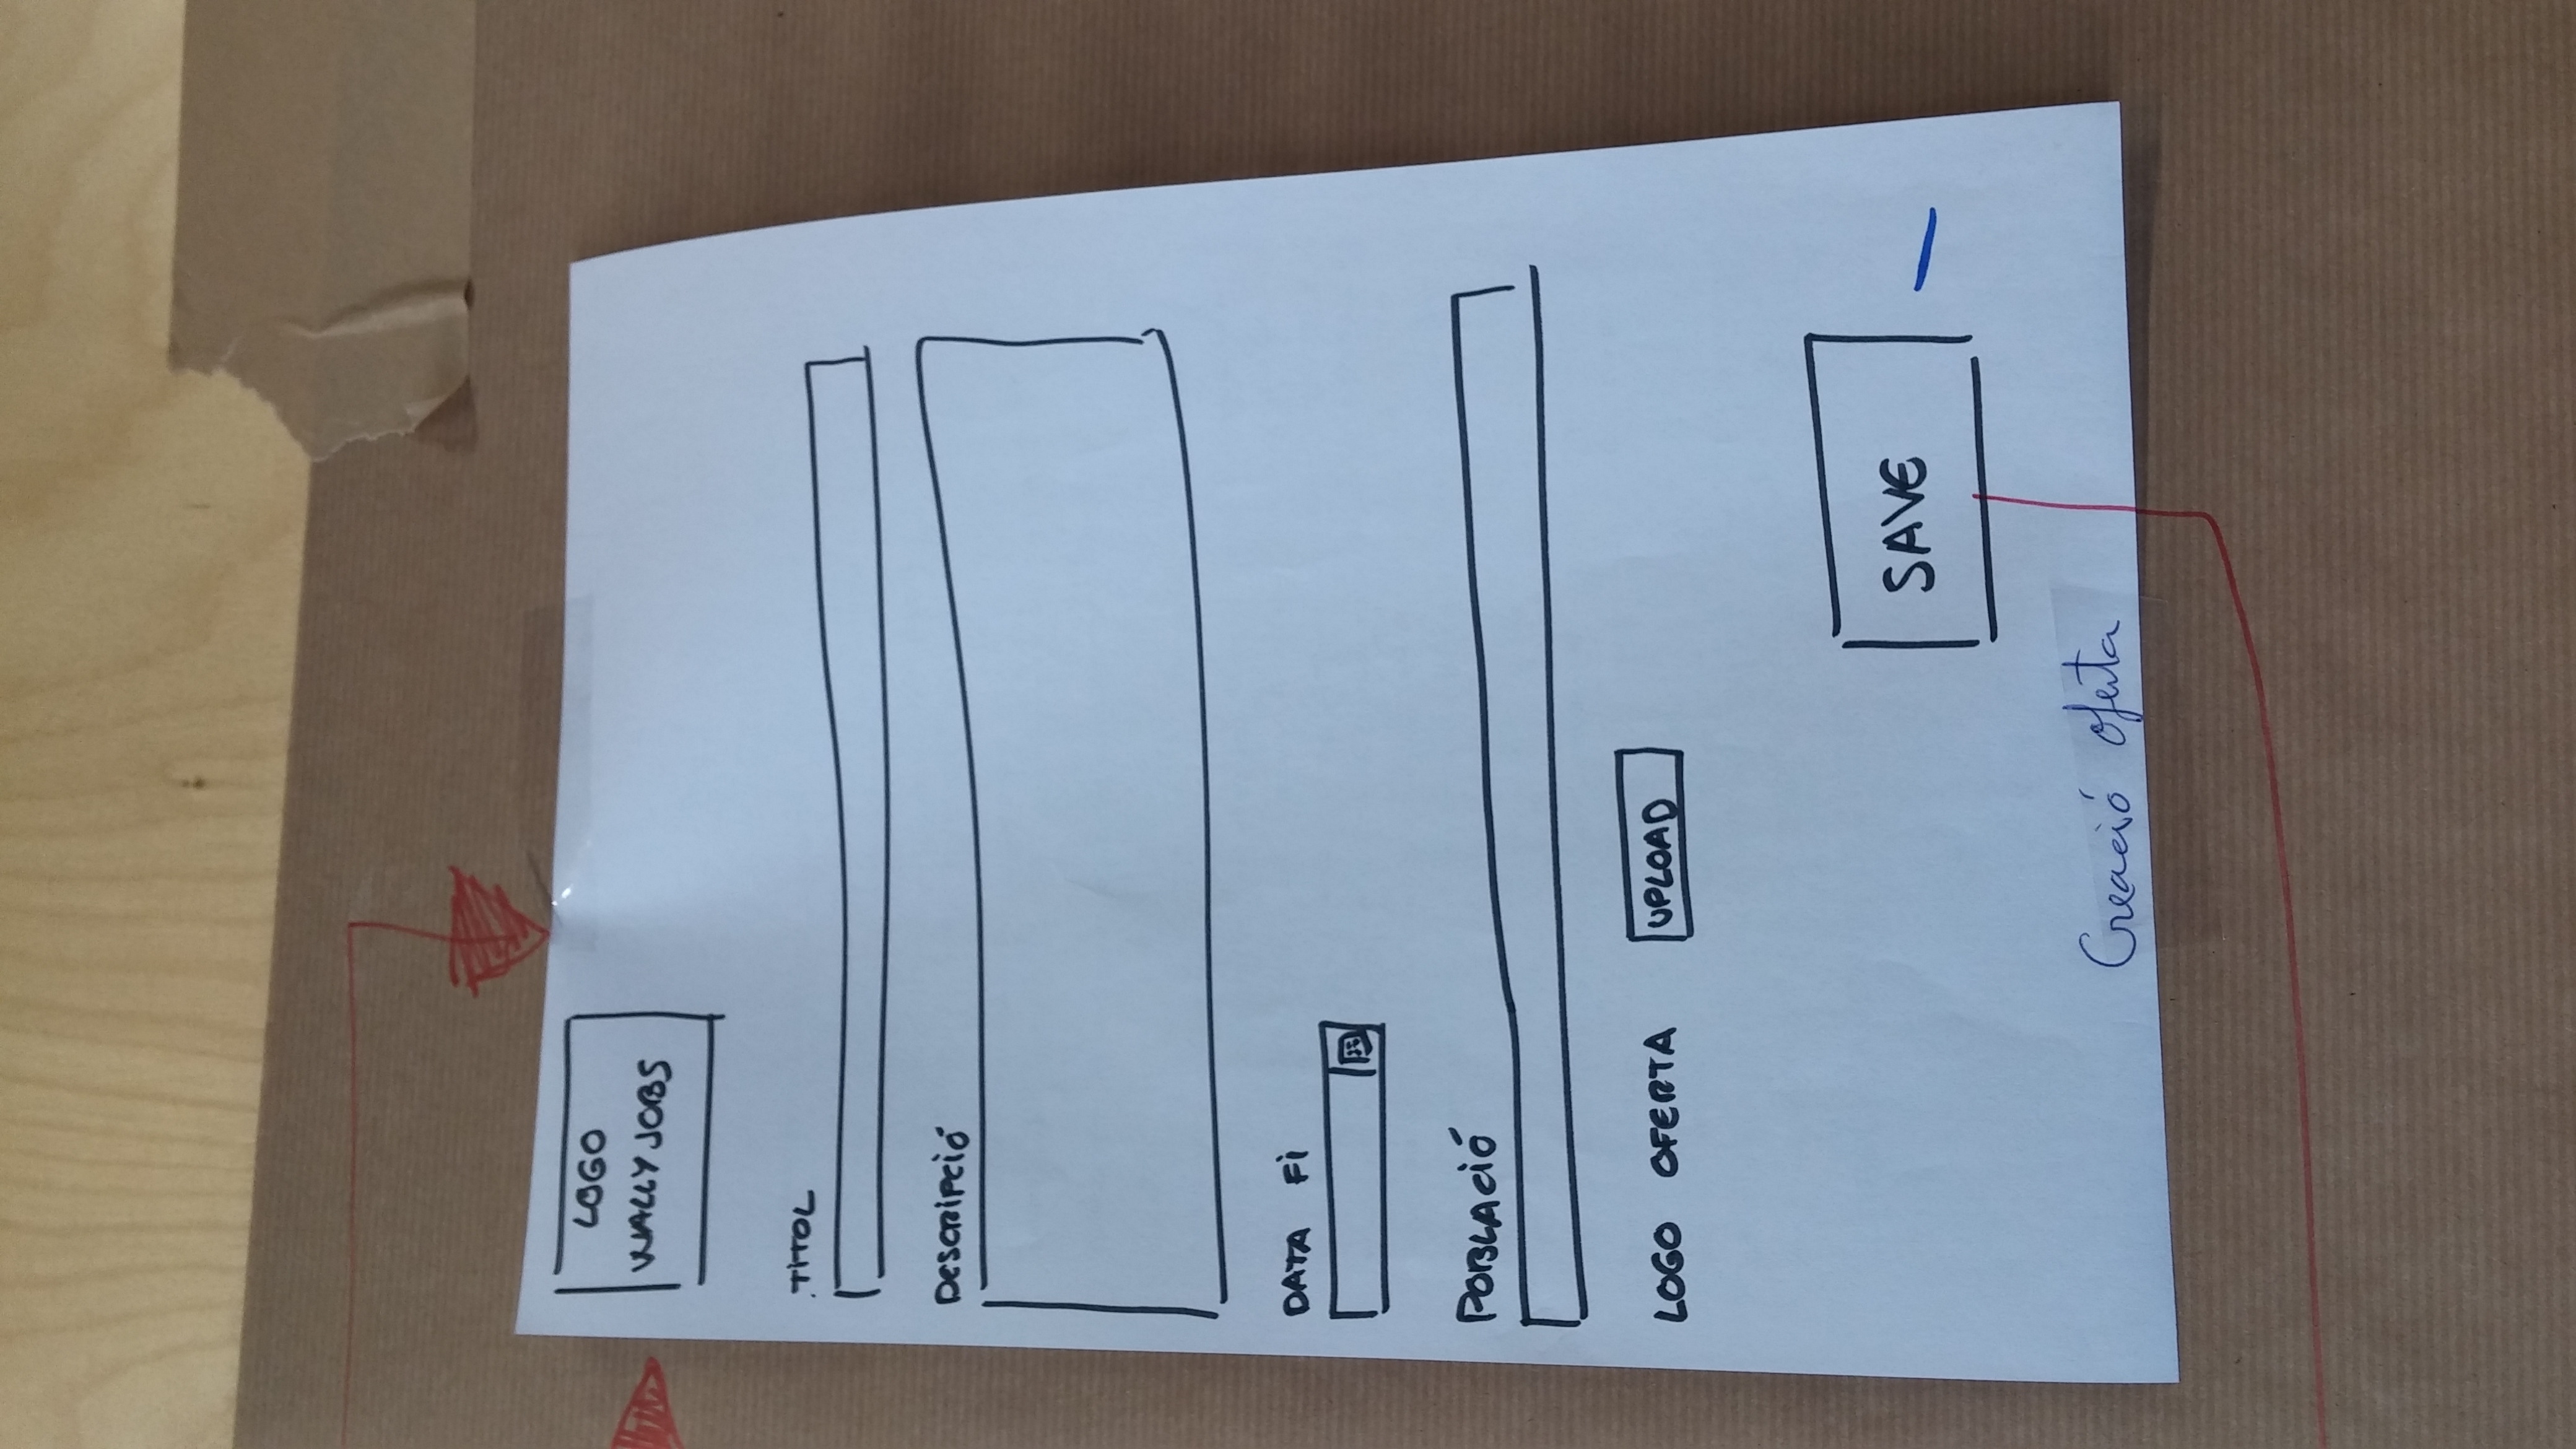 LOGO
WALLYJOBS
TÍTOL
Descripció
DATA Fi
Població
LOGO OFERTA UPLOAD
SAVE
Creació oferta